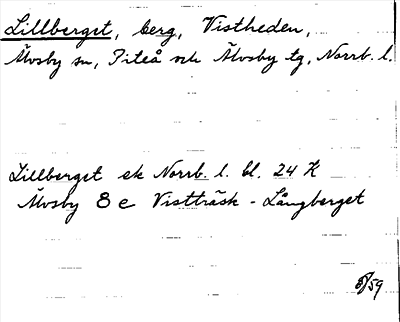 Lillberget, berg, Vistheden,
Älvsby sn, Piteå och Älvsby tg, Norrb. l.
Lillberget ek Norrb. l. bl. 24 K
Älvsby 8 e Vistträsk - Långberget
/59